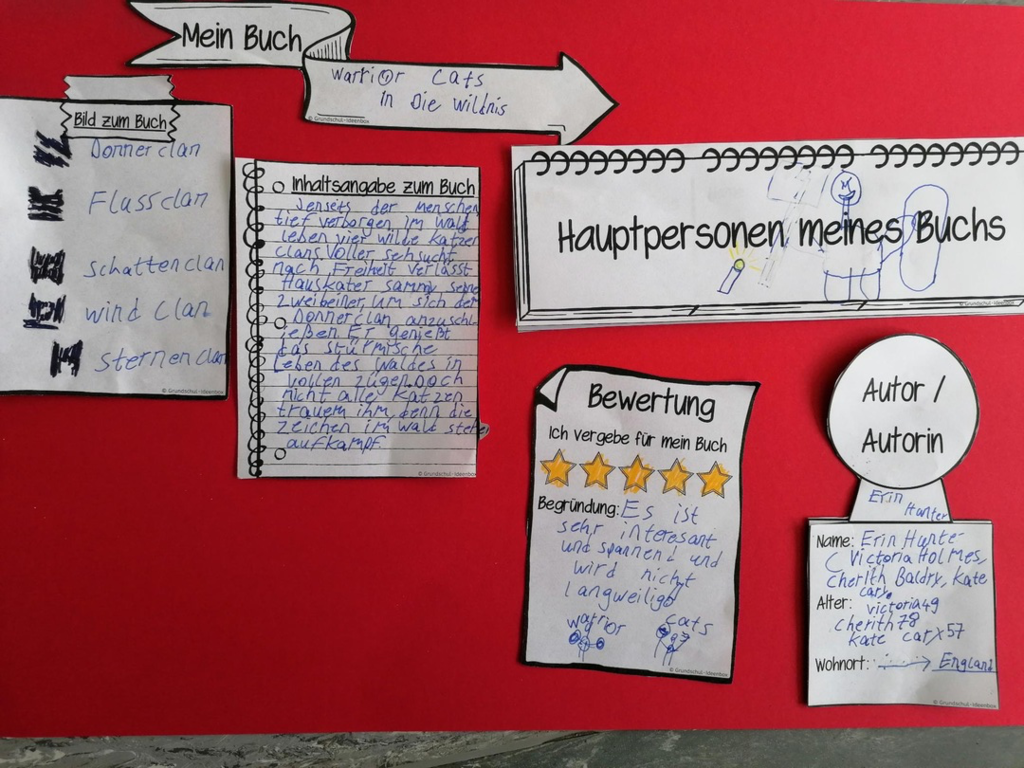 Mein Buch
Warrior Cats
in Die wildnis
© Grundschul-Ideenbox
Bild zum Buch
Donnerclan
Flassclan
Schattenclan
wind clan
Sternenclan
© Grundschul-Ideenbox
Inhaltsangabe zum Buch
Jenseits der menschen
tief verborgen im Wald
leben vier wilde katzen
clans voller sehsucht
nach Freiheit verlässt
Hauskater sammy seine
zweibeiner, um sich dem
Donnerclan anzuschl
ießen. Er genießt
das stürmische
Leben des Waldes in
vollen zügen. Doch
nicht aller katzen
trauem ihm, denn die
zeichen im wald stehen
aufkampf.
© Grundschul-Ideenbox
Hauptpersonen meines Buchs
© Grundschul-Ideenbox
Bewertung
Ich vergebe für mein Buch
Begründung: Es ist
sehr interesant
und spannend und
wird nicht
langweilig
warrior cats
© Grundschul-Ideenbox
Autor /
Autorin
Erin
Hunter
Name: Erin Hunte-
( Victoria Holmes,
cherith Baldry, kate
cary.
Alter: victoria 49
cherith 78
kate cary 57
Wohnort: England
© Grundschul-Ideenbox